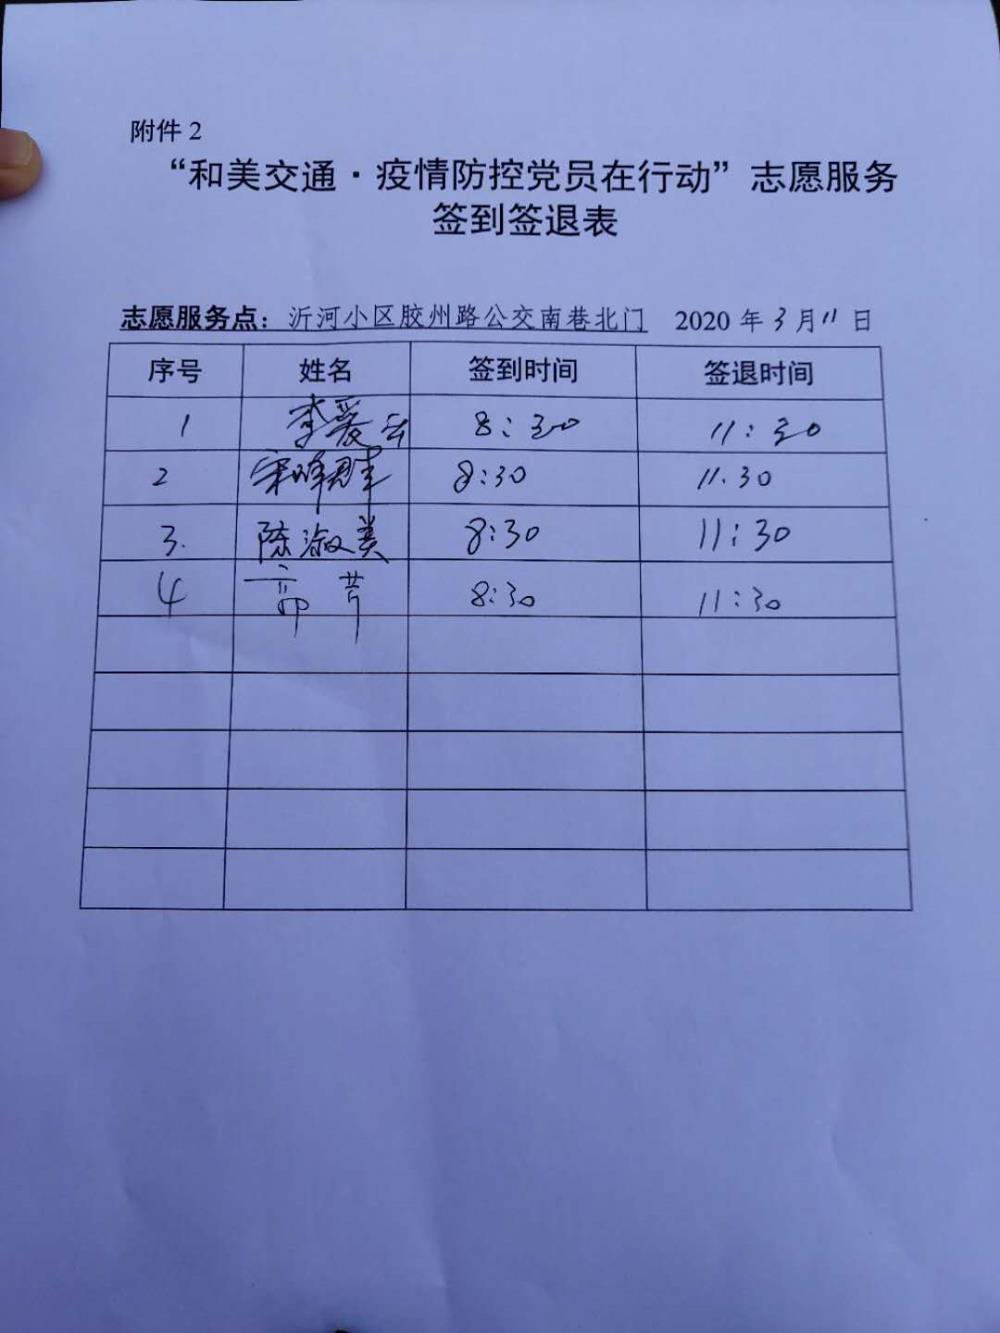 附件 2
“和美交通·疫情防控党员在行动”志愿服务
签到签退表
志愿服务点：沂河小区胶州路公交南巷北门 2020 年 3 月 11 日
序号 姓名 签到时间 签退时间
1 李爱云 8:30 11:30
2 宋 8:30 11.30
3. 陈淑美 8:30 11:30
4 郭芹 8:30 11:30